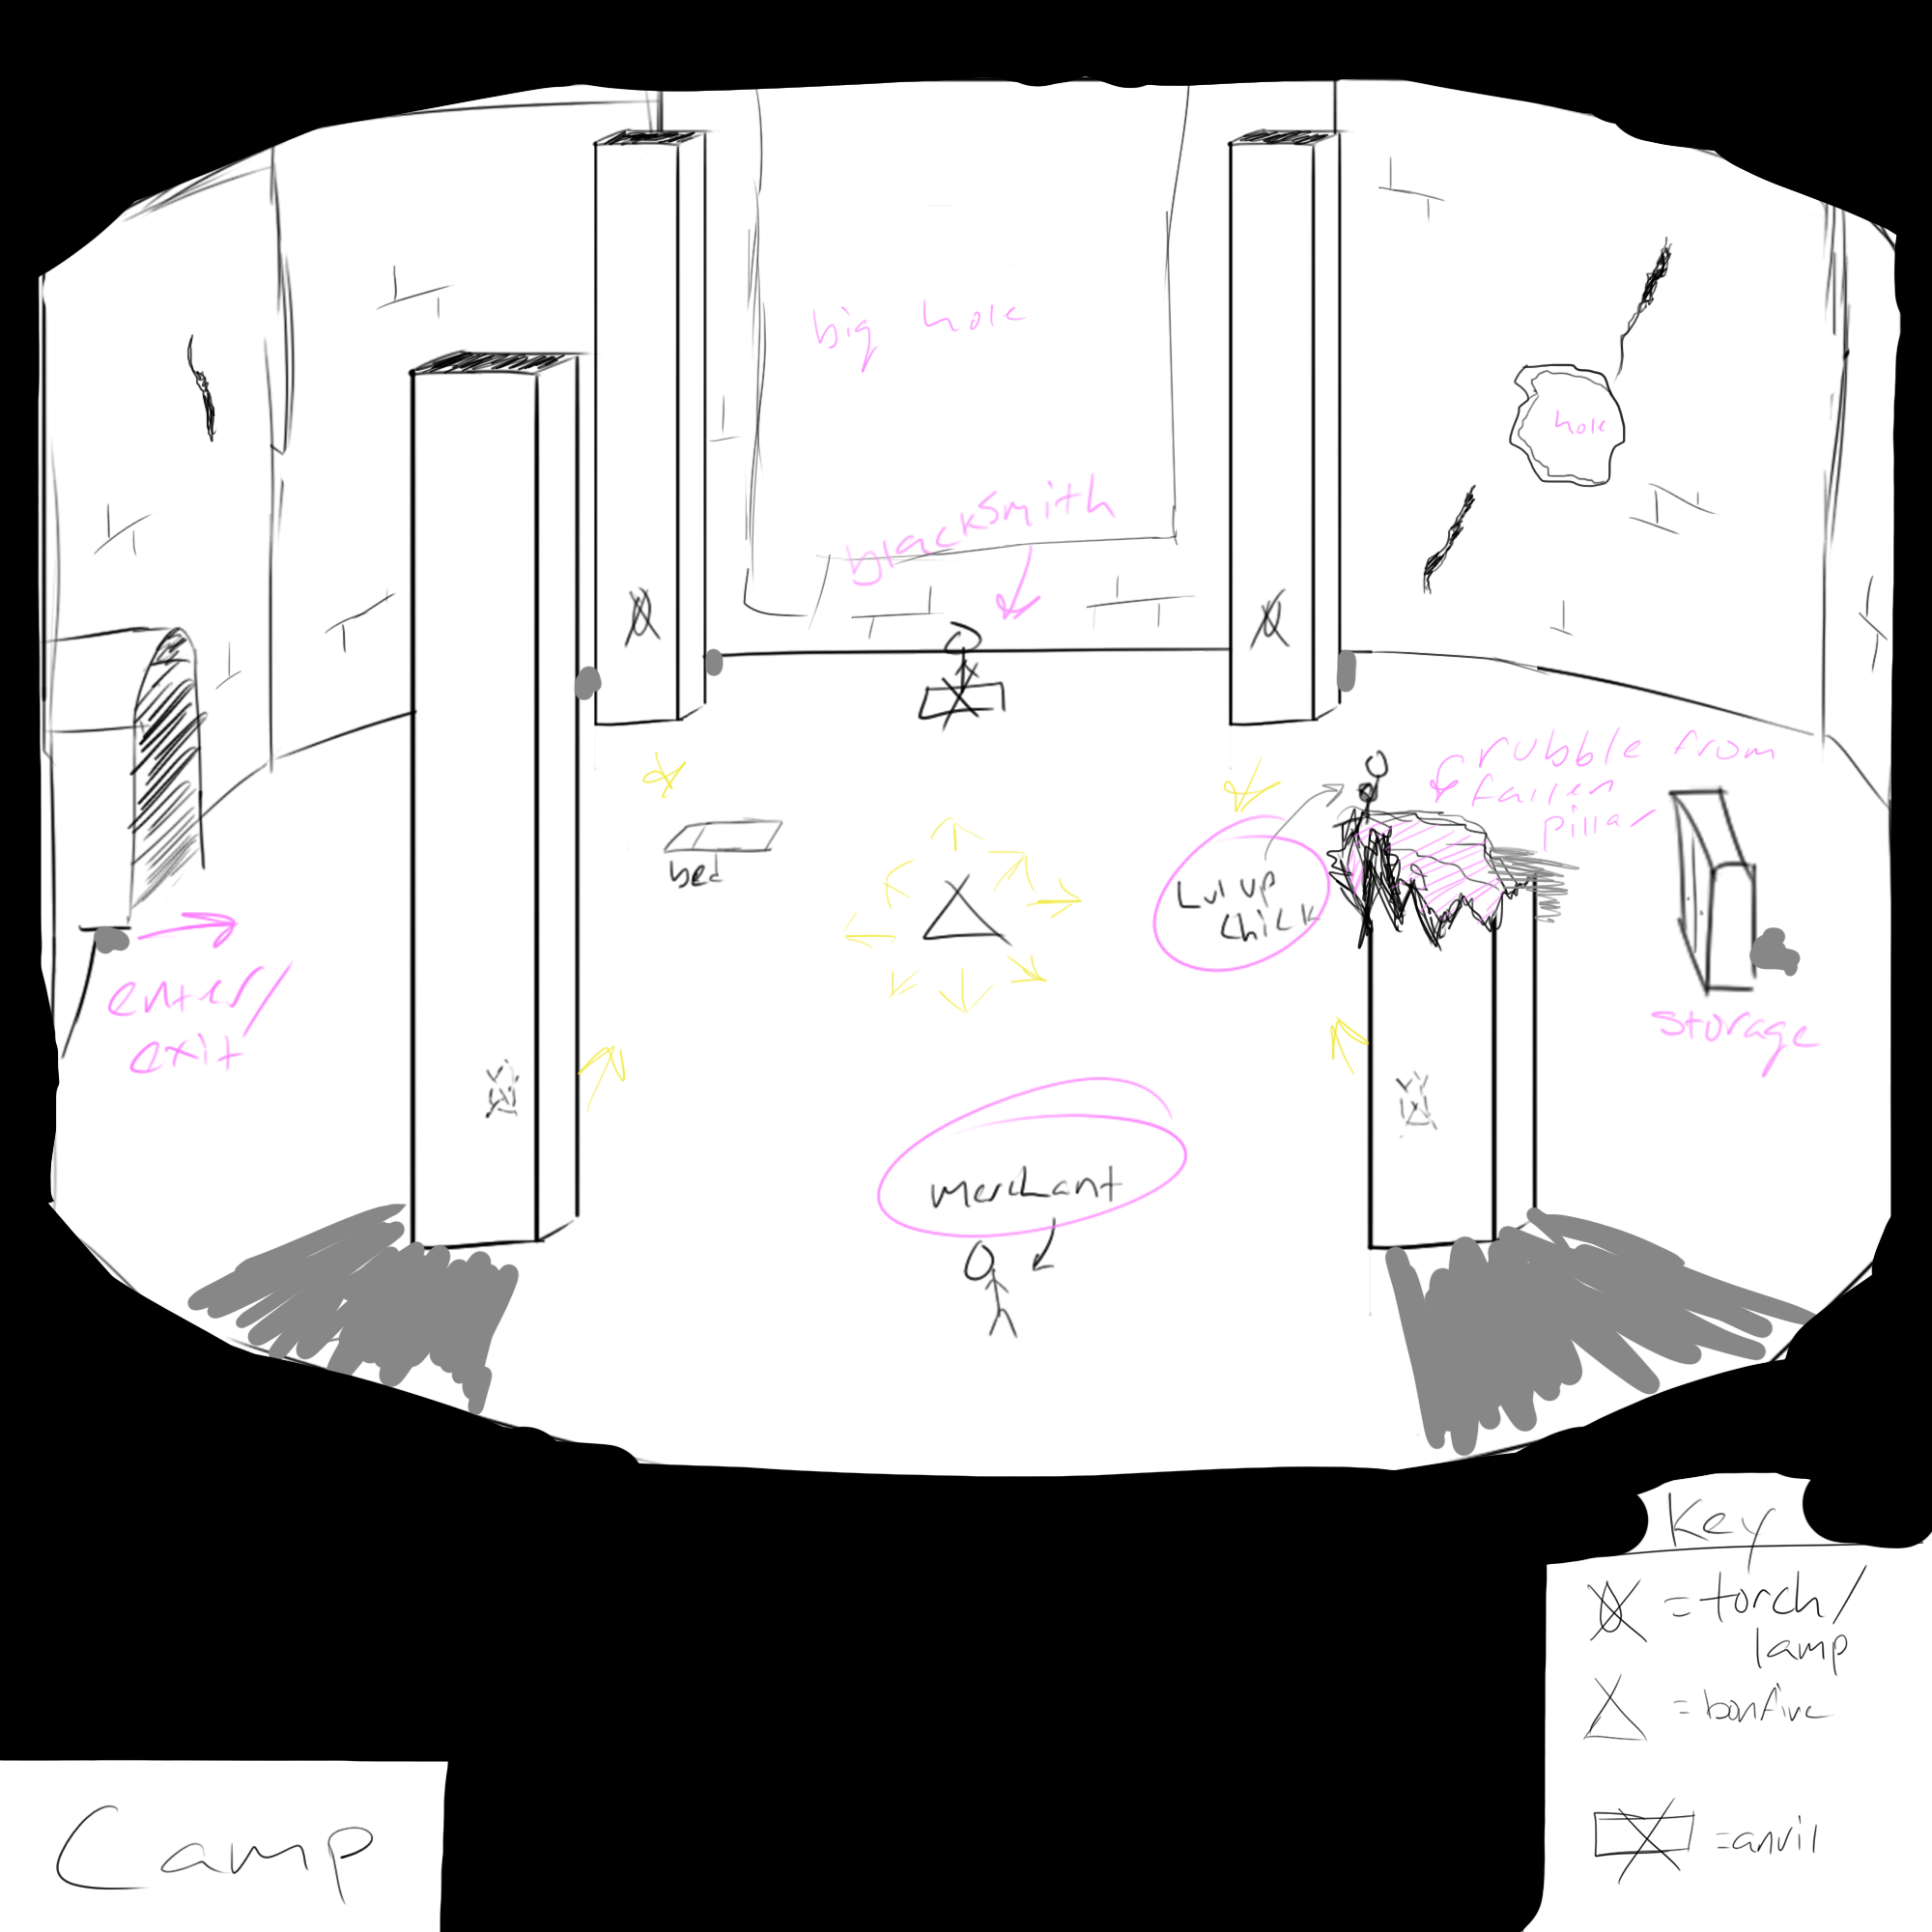 big hole
hole
blacksmith
rubble from
fallen
pillar
bed
Lvl up
chick
enter/
exit
storage
merchant
Key
= torch/
lamp
= bonfire
= anvil
Camp